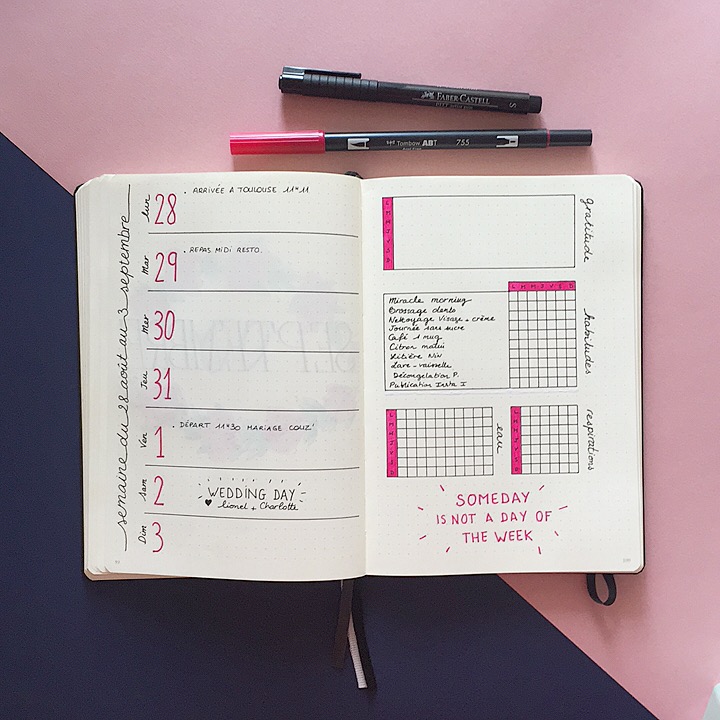 FABER-CASTELL
S
Tombow ABT
755
semaine du 28 août au 3 septembre
lun 28
. ARRIVÉE A TOULOUSE 11H11
Mar 29
. REPAS MIDI RESTO.
Mer 30
Jeu 31
Ven 1
. DÉPART 11H30 MARIAGE COUZ'
Sam 2
WEDDING DAY
♥ Lionel + Charlotte
Dim 3
SEPTEMB
gratitude
L
M
M
J
V
S
D
habitudes
L M M J V S D
Miracle morning
Brossage dents
Nettoyage Visage + crème
Journée sans sucre
Café 1 mug
Citron matin
Litière Niv
Lave-vaisselle
Décongelation P.
Publication Insta I
eau
L
M
M
J
V
S
D
respirations
L
M
M
J
V
S
D
SOMEDAY
IS NOT A DAY OF
THE WEEK